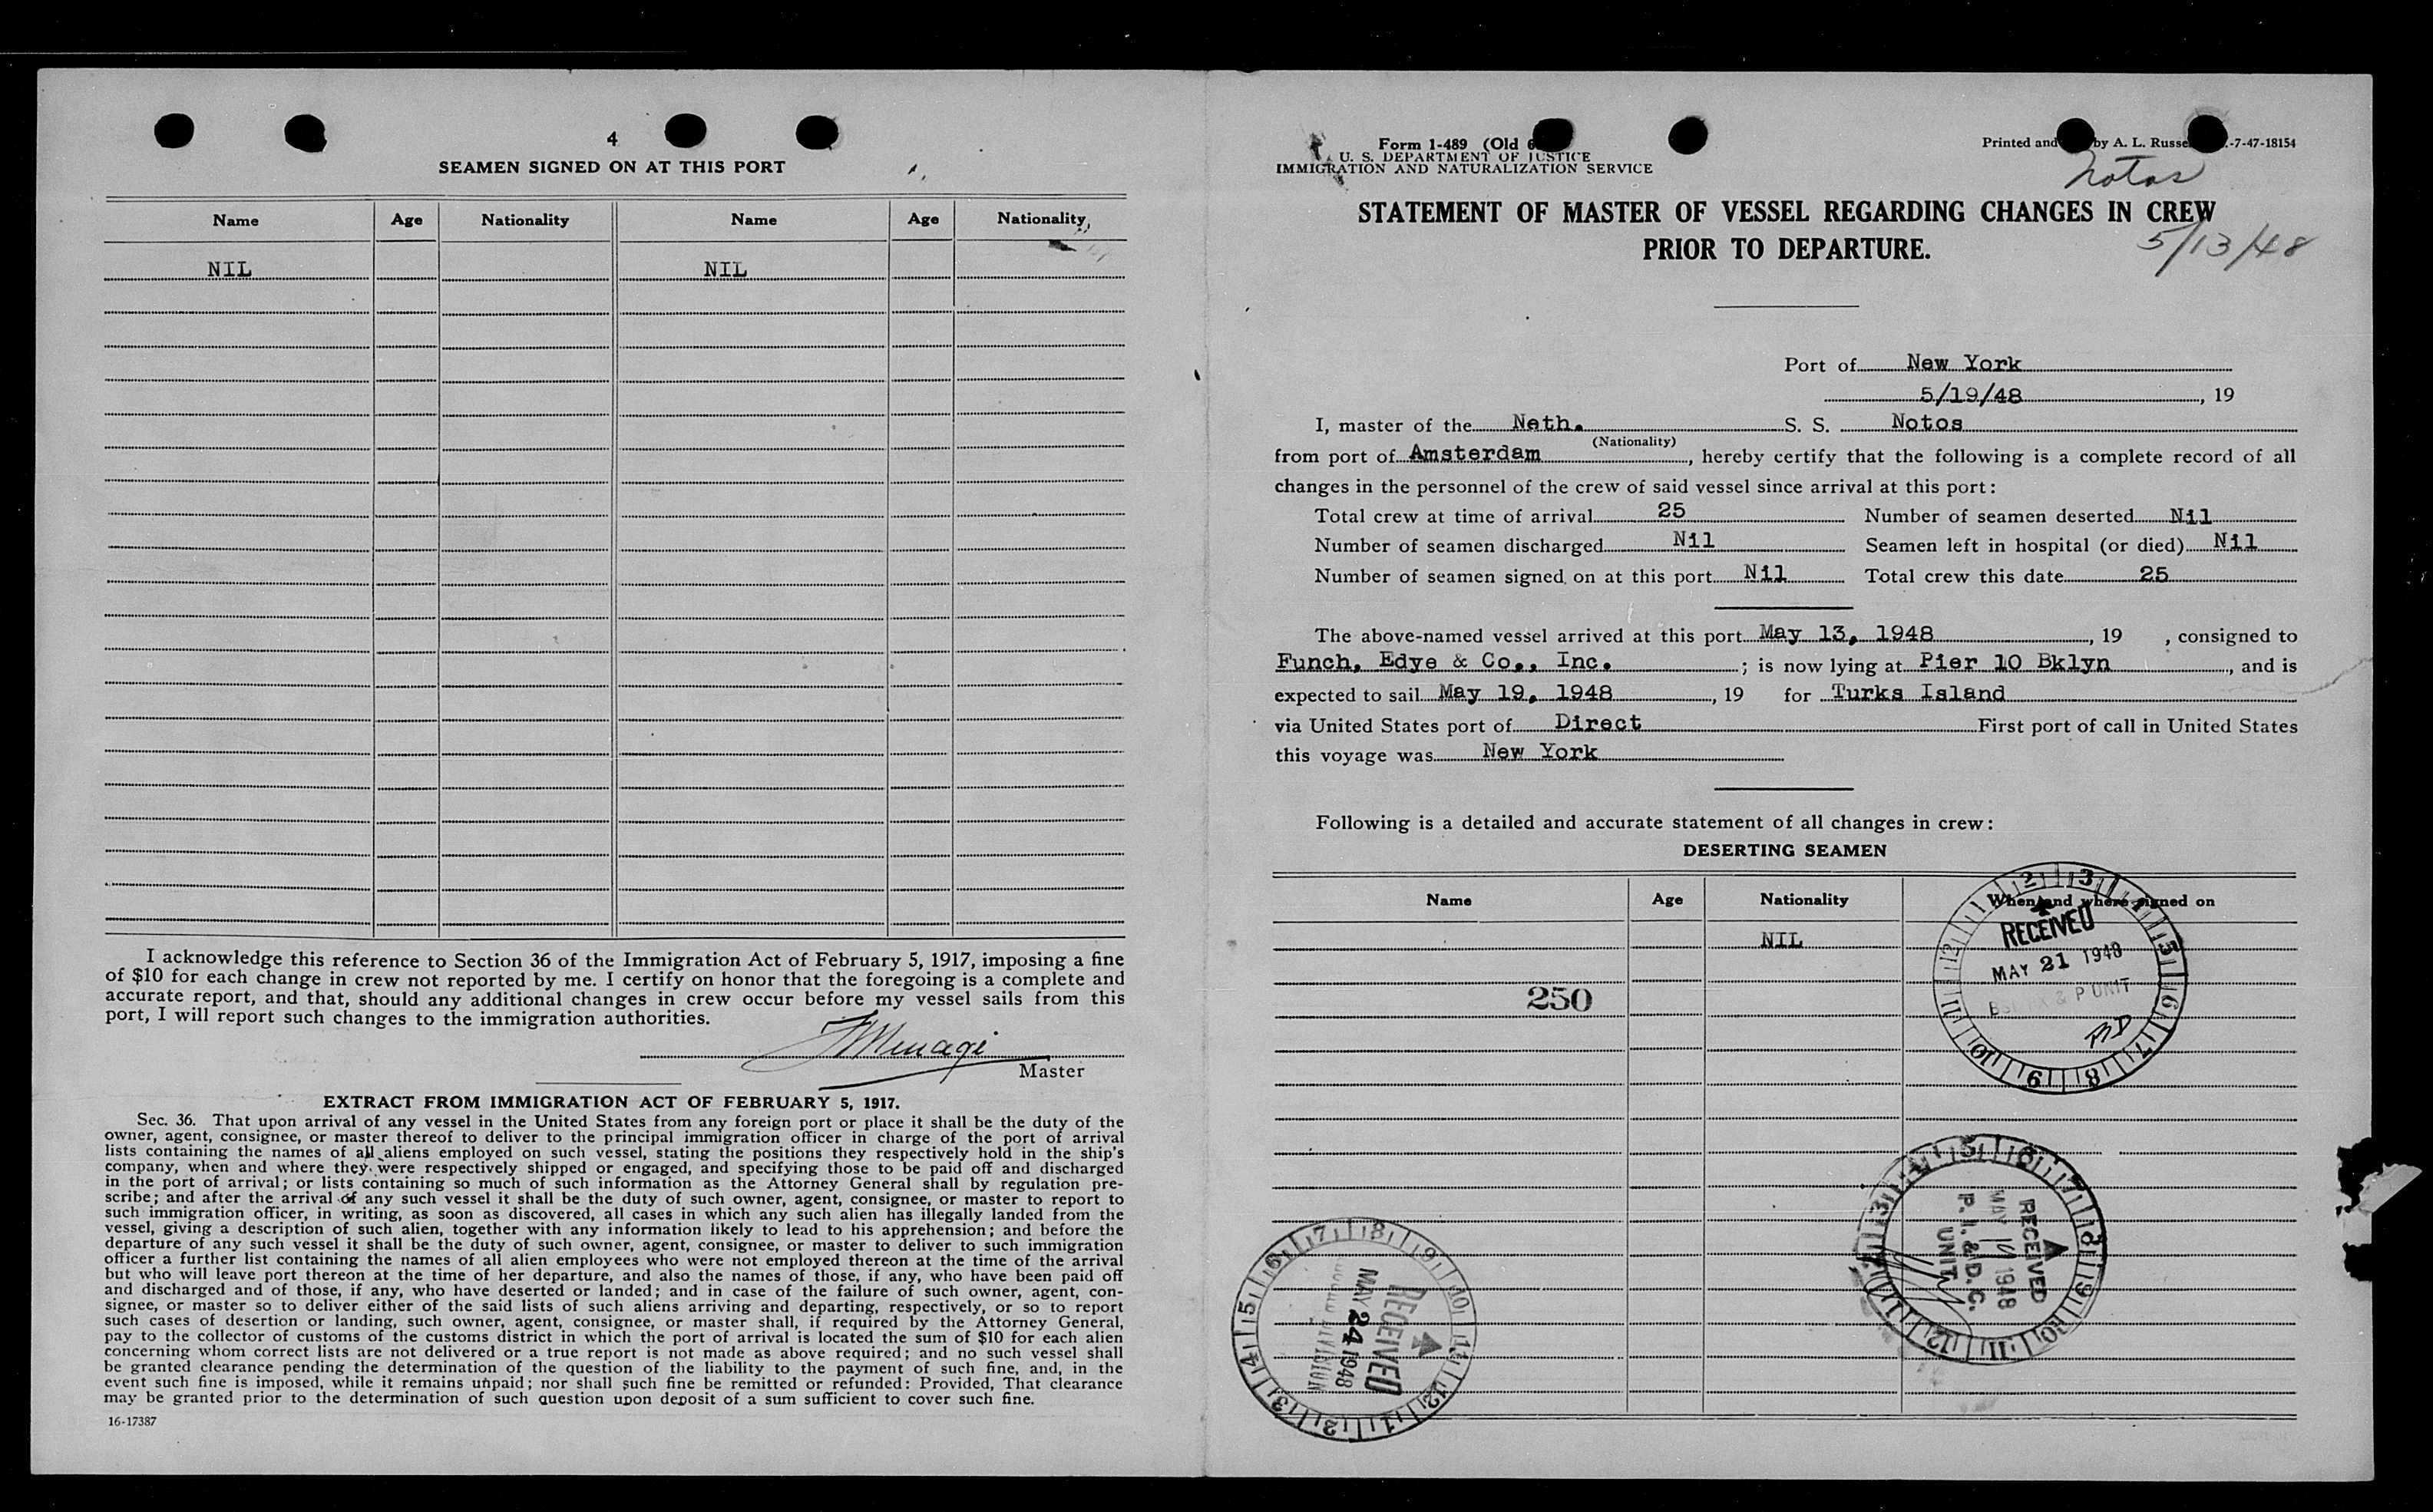 4
SEAMEN SIGNED ON AT THIS PORT
Name Age Nationality Name Age Nationality
NIL NIL
I acknowledge this reference to Section 36 of the Immigration Act of February 5, 1917, imposing a fine
of $10 for each change in crew not reported by me. I certify on honor that the foregoing is a complete and
accurate report, and that, should any additional changes in crew occur before my vessel sails from this
port, I will report such changes to the immigration authorities.
Master
EXTRACT FROM IMMIGRATION ACT OF FEBRUARY 5, 1917.
Sec. 36. That upon arrival of any vessel in the United States from any foreign port or place it shall be the duty of the
owner, agent, consignee, or master thereof to deliver to the principal immigration officer in charge of the port of arrival
lists containing the names of all aliens employed on such vessel, stating the positions they respectively hold in the ship's
company, when and where they were respectively shipped or engaged, and specifying those to be paid off and discharged
in the port of arrival; or lists containing so much of such information as the Attorney General shall by regulation pre-
scribe; and after the arrival of any such vessel it shall be the duty of such owner, agent, consignee, or master to report to
such immigration officer, in writing, as soon as discovered, all cases in which any such alien has illegally landed from the
vessel, giving a description of such alien, together with any information likely to lead to his apprehension; and before the
departure of any such vessel it shall be the duty of such owner, agent, consignee, or master to deliver to such immigration
officer a further list containing the names of all alien employees who were not employed thereon at the time of the arrival
but who will leave port thereon at the time of her departure, and also the names of those, if any, who have been paid off
and discharged and of those, if any, who have deserted or landed; and in case of the failure of such owner, agent, con-
signee, or master so to deliver either of the said lists of such aliens arriving and departing, respectively, or so to report
such cases of desertion or landing, such owner, agent, consignee, or master shall, if required by the Attorney General,
pay to the collector of customs of the customs district in which the port of arrival is located the sum of $10 for each alien
concerning whom correct lists are not delivered or a true report is not made as above required; and no such vessel shall
be granted clearance pending the determination of the question of the liability to the payment of such fine, and, in the
event such fine is imposed, while it remains unpaid; nor shall such fine be remitted or refunded: Provided, That clearance
may be granted prior to the determination of such question upon deposit of a sum sufficient to cover such fine.
16-17387
Form I-489 (Old
Printed and by A. L. Russe -7-47-18154
U. S. DEPARTMENT OF JUSTICE
IMMIGRATION AND NATURALIZATION SERVICE
Notos
STATEMENT OF MASTER OF VESSEL REGARDING CHANGES IN CREW
PRIOR TO DEPARTURE.
5/13/48
Port of New York
5/19/48, 19
I, master of the Neth. S. S. Notos
(Nationality)
from port of Amsterdam, hereby certify that the following is a complete record of all
changes in the personnel of the crew of said vessel since arrival at this port:
Total crew at time of arrival 25 Number of seamen deserted Nil
Number of seamen discharged Nil Seamen left in hospital (or died) Nil
Number of seamen signed on at this port Nil Total crew this date 25
The above-named vessel arrived at this port May 13, 1948, 19 , consigned to
Funch, Edye & Co., Inc.; is now lying at Pier 10 Bklyn, and is
expected to sail May 19, 1948, 19 for Turks Island
via United States port of Direct First port of call in United States
this voyage was New York
Following is a detailed and accurate statement of all changes in crew:
DESERTING SEAMEN
Name Age Nationality When and where signed on
NIL
250
1 2 3 4 5 6 7 8 9 10 11 12
RECEIVED
MAY 21 1948
& P UNIT
RD
1 2 3 4 5 6 7 8 9 10 11 12
RECEIVED
MAY 1948
P. I. & D. C.
UNIT
1 2 3 4 5 6 7 8 9 10 11 12
RECEIVED
MAY 24 1948